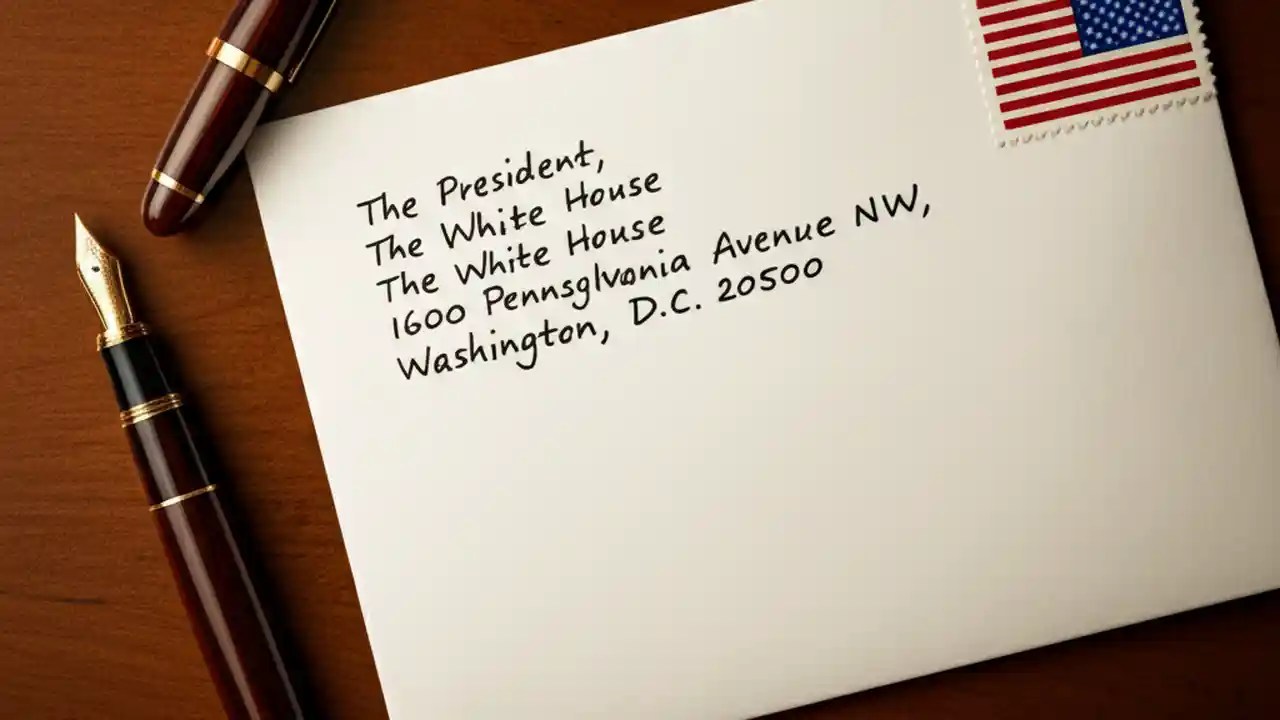 The President,
The White House
The White House
1600 Pennsylvania Avenue NW,
Washington, D.C. 20500